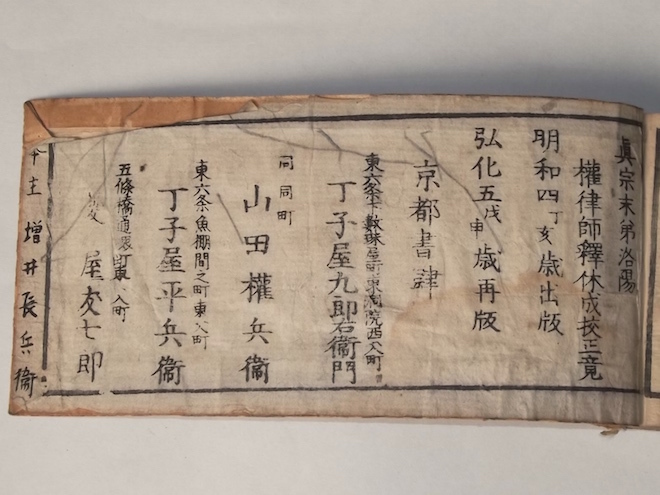 眞宗末弟洛陽
權律師釋休成挍正竟
明和四丁亥歳出版
弘化五戊申歳再版
京都書肆
東六条下數珠屋町東洞院西入町
丁子屋九郎右衞門
同同町
山田權兵衞
東六条魚棚間之町東入町
丁子屋平兵衞
五條橋通堺町東入町
屋友七郎
主增井長兵衞